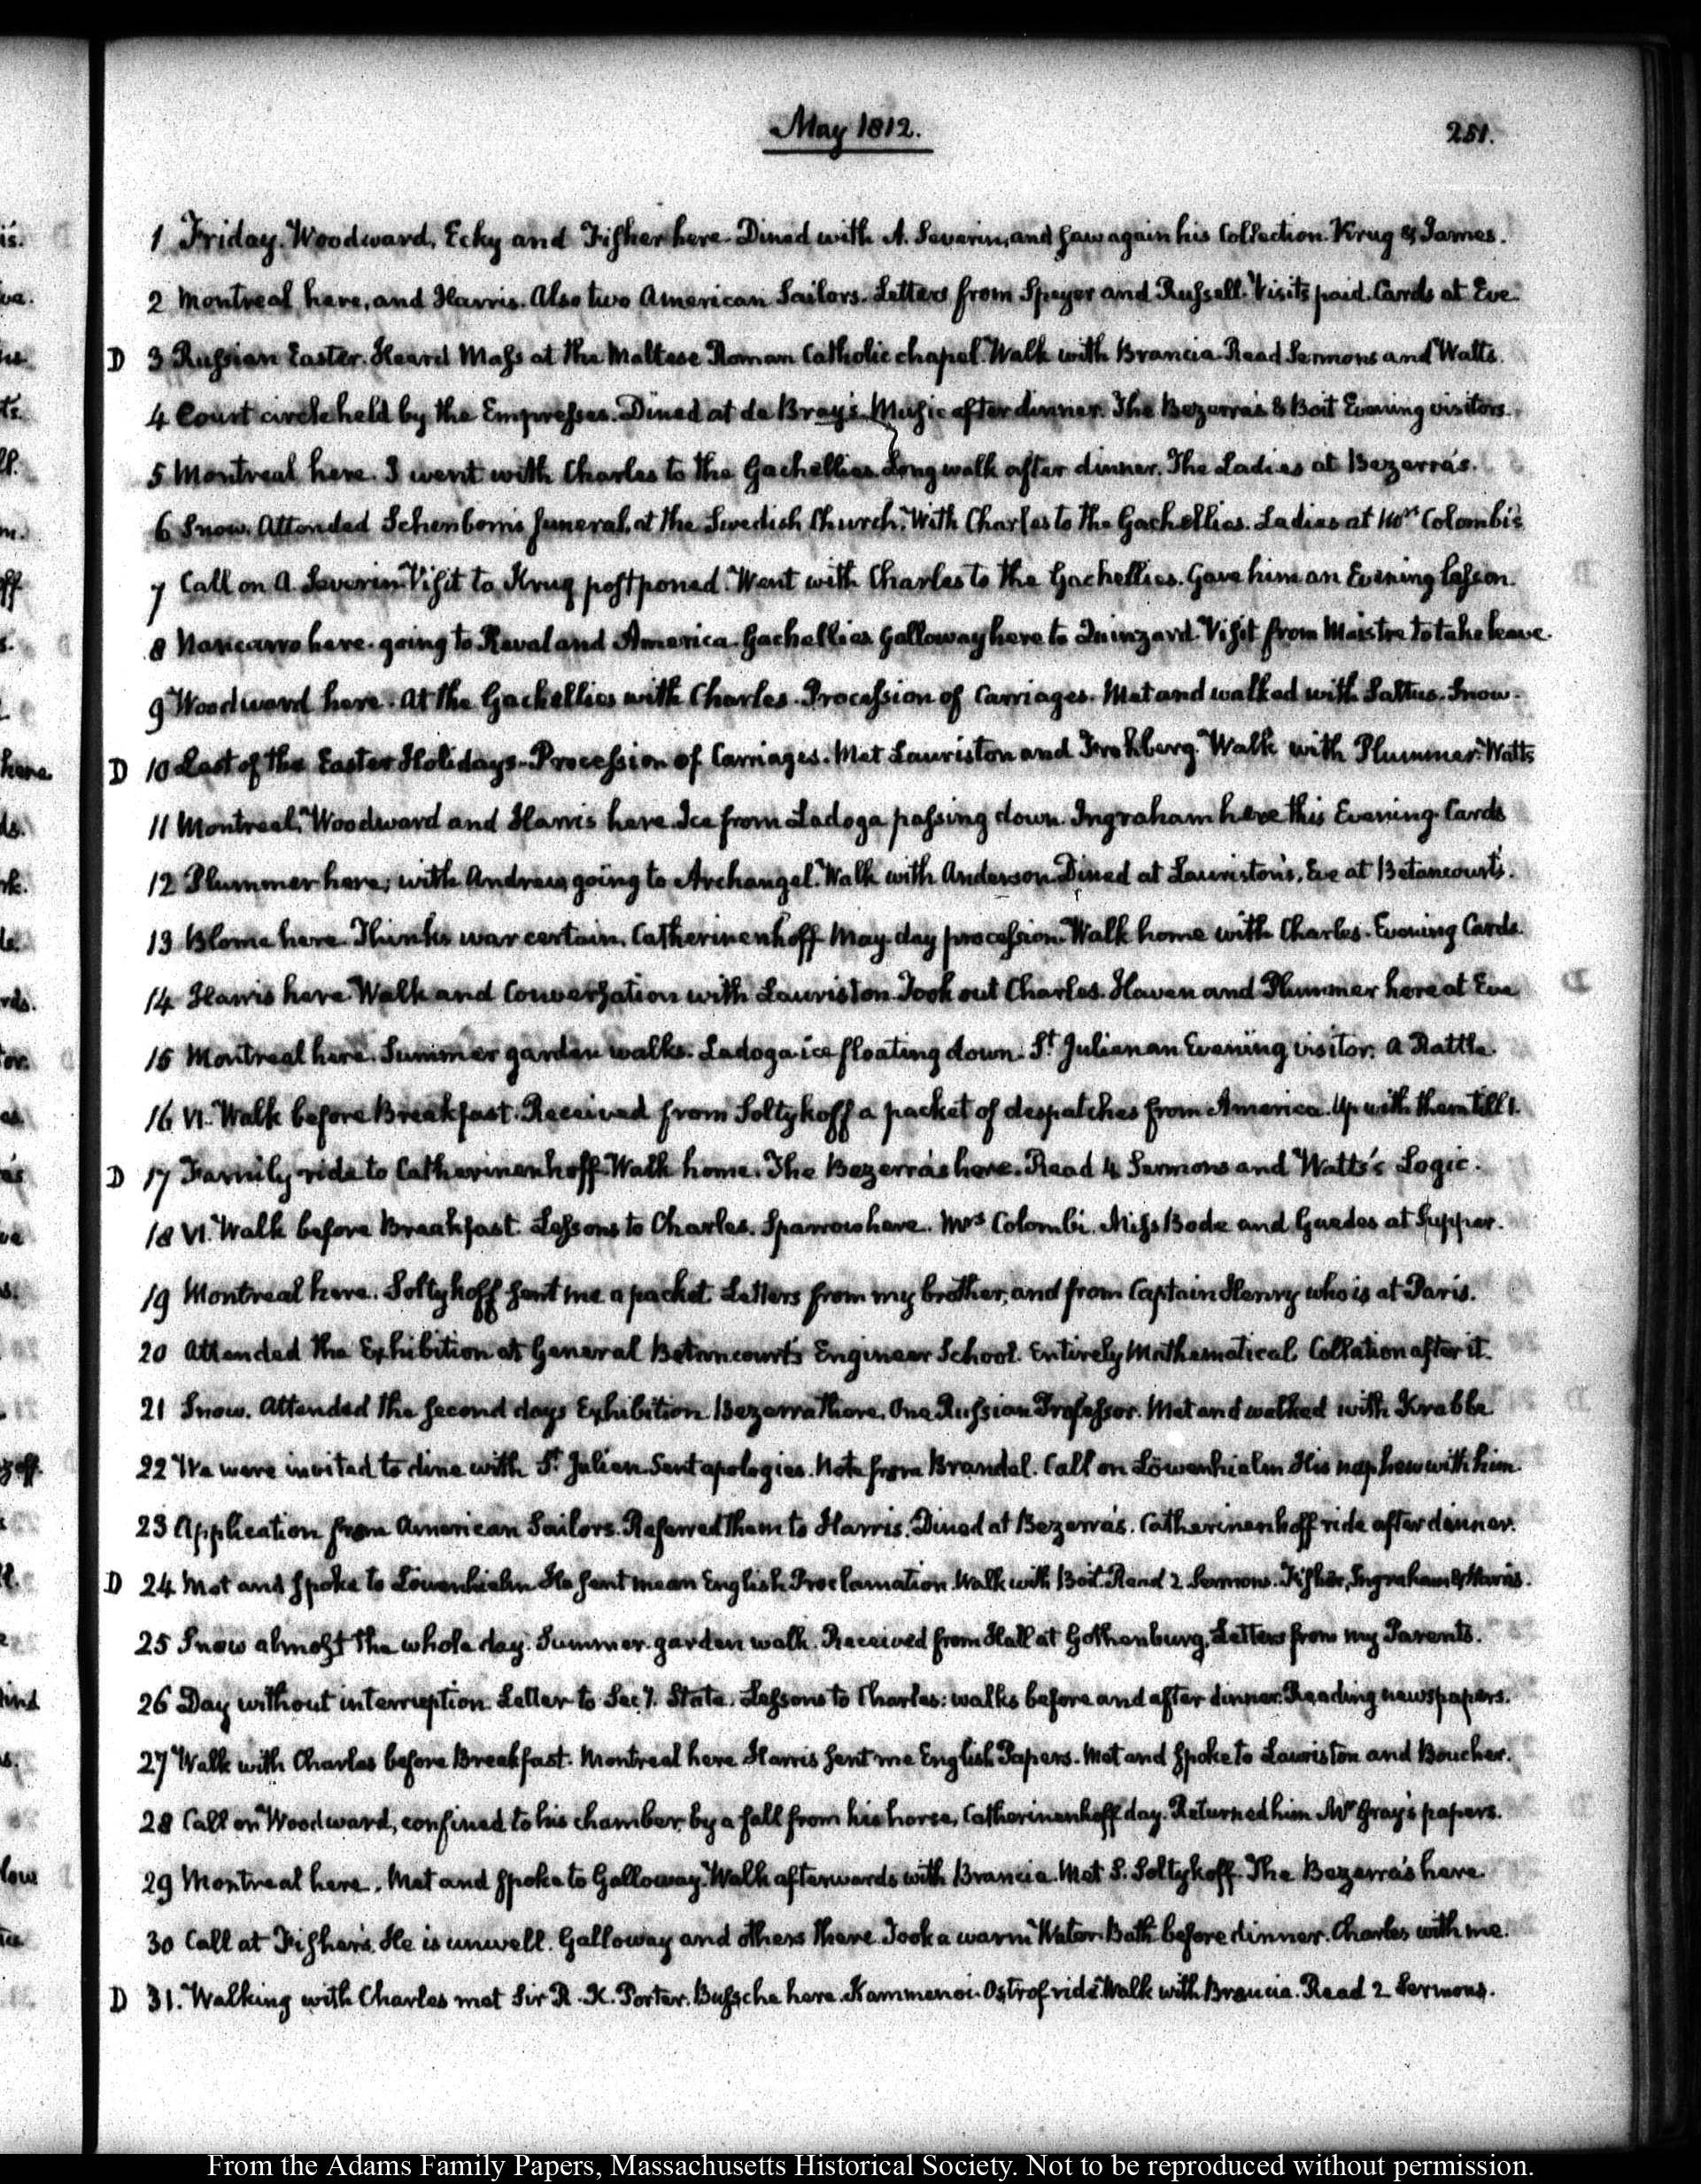 May 1812.
251.
1 Friday. Woodward, Ecky and Fisher here. Dined with A. Severin, and saw again his Collection. Krug & James.
2 Montreal here, and Harris. Also two American Sailors. Letters from Speyer and Russell. Visits paid. Cards at Eve.
D 3 Russian Easter. Heard Mass at the Maltese Roman Catholic chapel. Walk with Brancia. Read Sermons and Watts.
4 Court circle held by the Empresses. Dined at de Bray's. Music after dinner. The Bezerra's & Boit Evening visitors.
5 Montreal here. I went with Charles to the Gachellies. Long walk after dinner. The Ladies at Bezerra's.
6 Snow. Attended Schenbom's funeral, at the Swedish Church. With Charles to the Gachellies. Ladies at Colombi's
7 Call on A. Severin. Visit to Krug postponed. Went with Charles to the Gachellies. Gave him an Evening lesson.
8 Nancarro here. going to Reval and America. Gachellies Galloway here to Quinzard. Visit from Maistre to take leave.
9 Woodward here. At the Gachellies with Charles. Procession of Carriages. Met and walked with Lattus. Snow.
D 10 Last of the Easter Holidays. Procession of Carriages. Met Lauriston and Frohberg. Walk with Plummer. Watts
11 Montreal, Woodward and Harris here. Ice from Ladoga passing down. Ingraham here this Evening. Cards
12 Plummer here; with Andrews going to Archangel. Walk with Anderson. Dined at Lauriston's, Eve at Betancourt's.
13 Blome here. Thinks war certain. Catherinenhoff May-day procession. Walk home with Charles. Evening Cards.
14 Harris here. Walk and Conversation with Lauriston. Took out Charles. Haven and Plummer here at Eve
15 Montreal here. Summer garden walks. Ladoga ice floating down. St. Julien an Evening visitor. A Rattle.
16 VI. Walk before Breakfast. Received from Soltykoff a packet of despatches from America. Up with them till 1.
D 17 Family ride to Catherinenhoff. Walk home. The Bezerra's here. Read 4 Sermons and Watts's Logic.
18 VI. Walk before Breakfast. Lessons to Charles. Sparrow here. Mrs Colombi, Miss Bode and Guedes at Supper.
19 Montreal here. Soltykoff sent me a packet. Letters from my brother, and from Captain Henry who is at Paris.
20 Attended the Exhibition at General Betancourt's Engineer School. Entirely Mathematical. Collation after it.
21 Snow. Attended the second days Exhibition. Bezerra there. One Russian Professor. Met and walked with Krabbe
22 We were invited to dine with St. Julien. Sent apologies. Note from Brandel. Call on Löwenhielm. His nephew with him.
23 Application from American Sailors. Referred them to Harris. Dined at Bezerra's. Catherinenhoff ride after dinner.
D 24 Met and spoke to Löwenhielm. He sent me an English Proclamation. Walk with Boit. Read 2 Sermons. Fisher, Ingraham & Harris.
25 Snow almost the whole day. Summer-garden walk. Received from Hall at Gothenburg, Letters from my Parents.
26 Day without interruption. Letter to Secy. State. Lessons to Charles: walks before and after dinner. Reading newspapers.
27 Walk with Charles before Breakfast. Montreal here. Harris sent me English Papers. Met and spoke to Lauriston and Boucher.
28 Call on Woodward, confined to his chamber by a fall from his horse. Catherinenhoff day. Returned him Mr Gray's papers.
29 Montreal here. Met and spoke to Galloway. Walk afterwards with Brancia. Met S. Soltykoff. The Bezerra's here.
30 Call at Fisher's. He is unwell. Galloway and others there. Took a warm Water Bath before dinner. Charles with me.
D 31. Walking with Charles met Sir R. K. Porter. Bussche here. Kammenoi-Ostrof ride. Walk with Brancia. Read 2 Sermons.
From the Adams Family Papers, Massachusetts Historical Society. Not to be reproduced without permission.